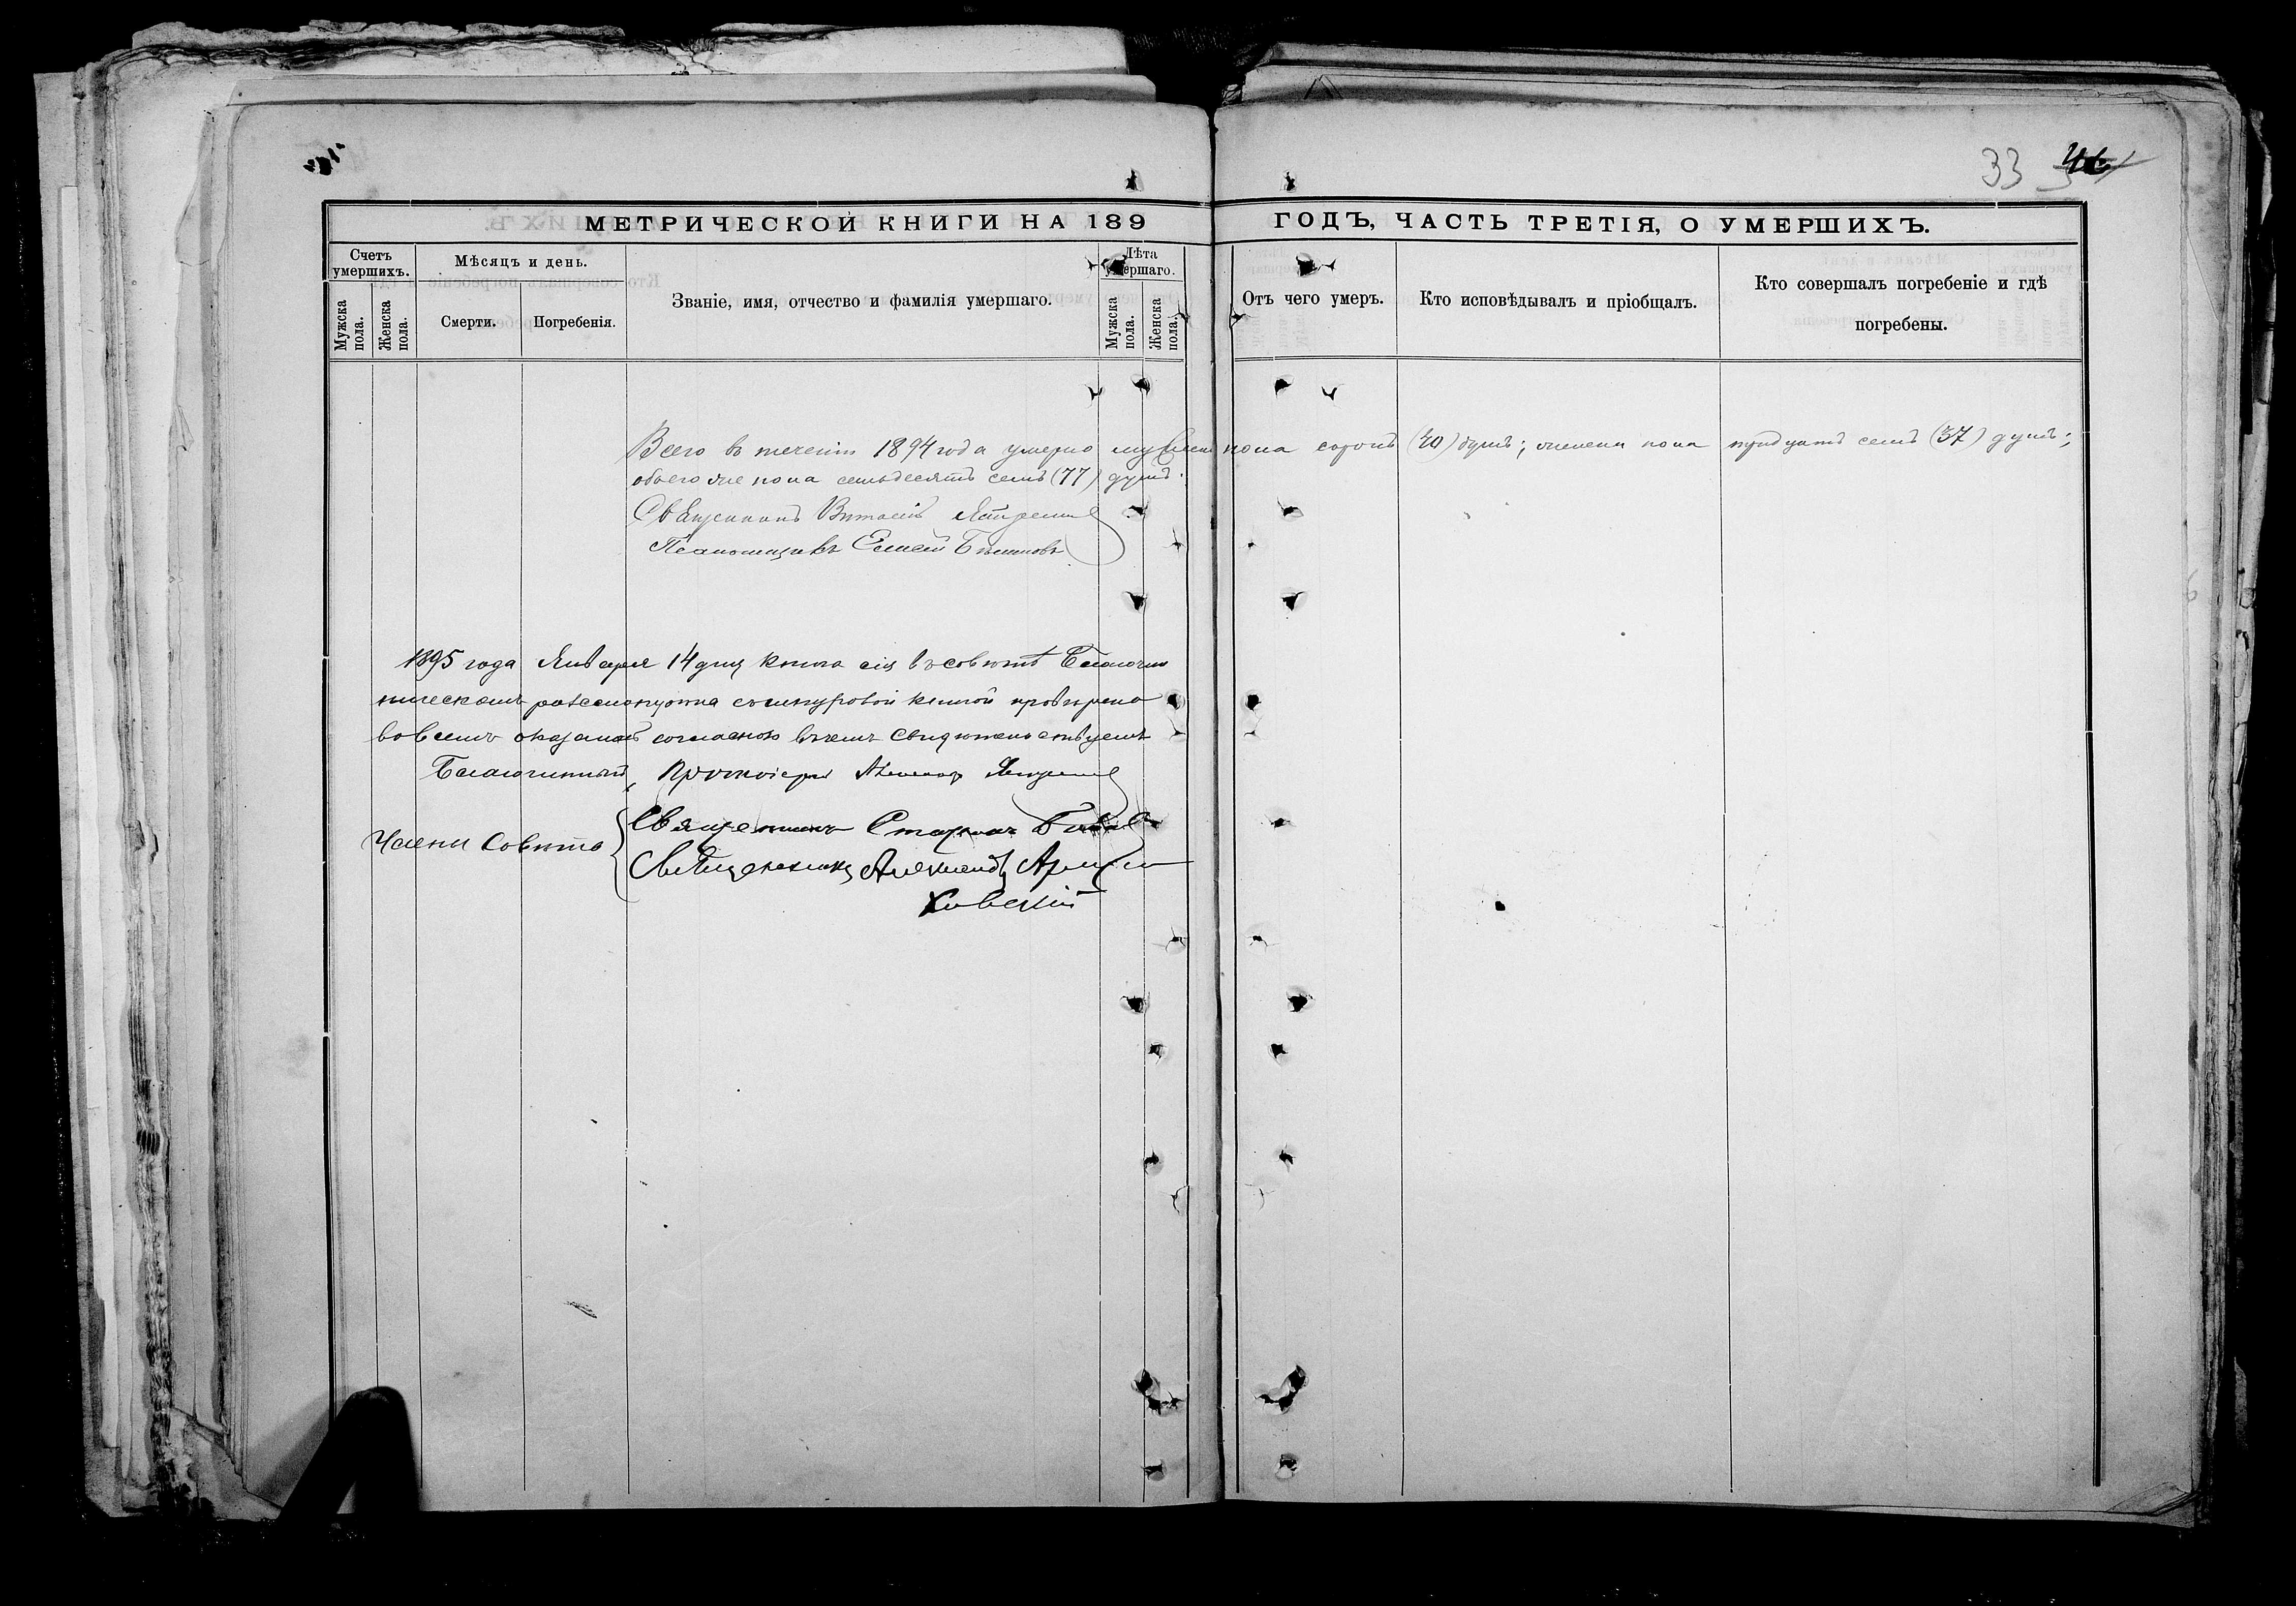 33
МЕТРИЧЕСКОЙ КНИГИ НА 189 ГОДЪ, ЧАСТЬ ТРЕТІЯ, О УМЕРШИХЪ.
Счетъ умершихъ.
Мужска пола.
Женска пола.
Мѣсяцъ и день.
Смерти.
Погребенія.
Званіе, имя, отчество и фамилія умершаго.
Лѣта умершаго.
Мужска пола.
Женска пола.
Отъ чего умеръ.
Кто исповѣдывалъ и пріобщалъ.
Кто совершалъ погребеніе и гдѣ погребены.
Всего въ теченіи 1894 года умерло мужеск пола сорокъ (40) душъ; женска пола тридцать семь (37) душъ;
обоего же пола семьдесятъ семь (77) душъ.
Священникъ
Псаломщикъ
1895 года Января 14 дня книга сія въ совѣтѣ Благочин
ническомъ разсмотрена съ шнуровой книгой проверена
во всемъ оказалась согласною въ чемъ свидѣтельствуемъ
Благочинный, Протоіерей
Члены Совѣта
Священникъ
Священникъ Александръ